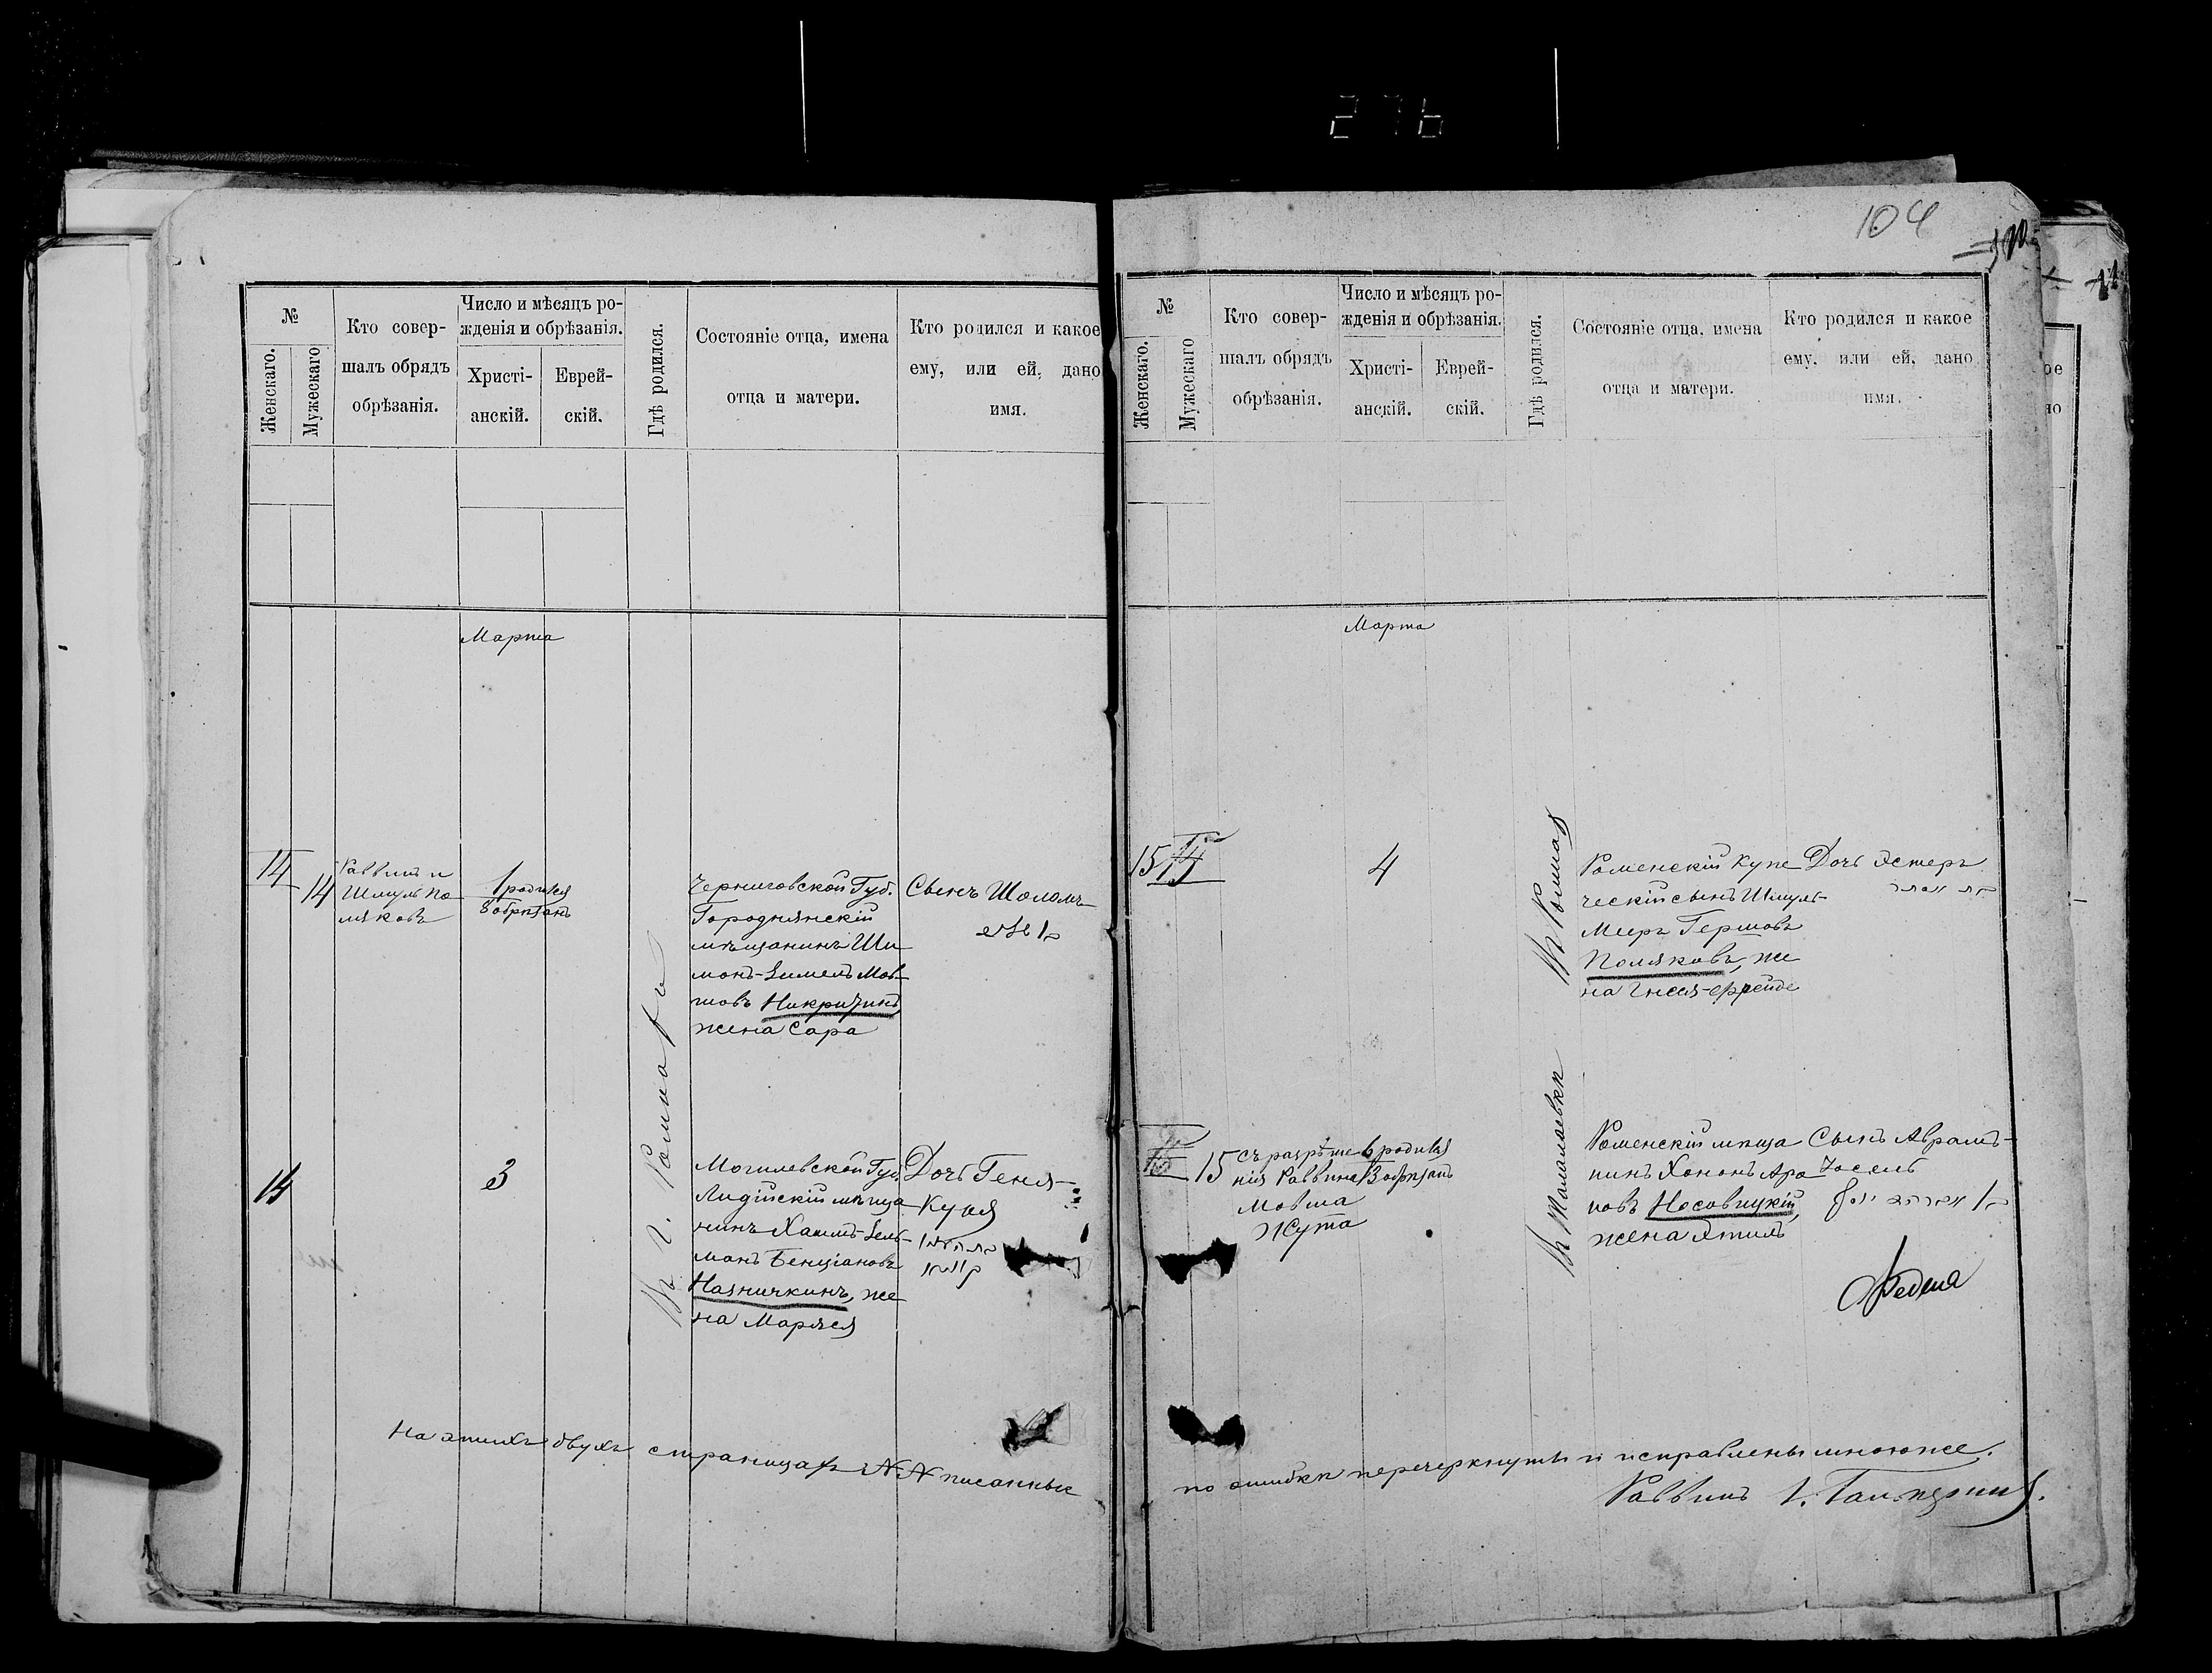 276
104
№
Женскаго.
Мужескаго
Кто совер-
шалъ обрядъ
обрѣзанія.
Число и мѣсяцъ ро-
жденія и обрѣзанія.
Христі-
анскій.
Еврей-
скій.
Гдѣ родился.
Состояніе отца, имена
отца и матери.
Кто родился и какое
ему, или ей, дано
имя.
Марта
14
14
Раввинъ и
Шмуль По-
ляковъ
1 родился
8 обрѣзанъ
Въ г. Ромнахъ
Черниговской Губ.
Городнянскій
мѣщанинъ Ши
монъ-Зимелъ Мов-
шовъ Никричинъ,
жена Сара
Сынъ Шоломъ
14
3
Могилевской Губ.
мѣща
нинъ Хаимъ-Зель-
манъ Бенціановъ
Назничкинъ, же
на Маряся
Дочь Геня-
На этихъ двухъ страницахъ №№ писанные
№
Женскаго.
Мужескаго
Кто совер-
шалъ обрядъ
обрѣзанія.
Число и мѣсяцъ ро-
жденія и обрѣзанія.
Христі-
анскій.
Еврей-
скій.
Гдѣ родился.
Состояніе отца, имена
отца и матери.
Кто родился и какое
ему, или ей, дано
имя.
Марта
15
4
Въ Ромнахъ
Роменскій купе
ческій сынъ Шмуль-
Мееръ Гершовъ
Поляковъ, же
на Гнеся-Фрейде
Дочь Эстеръ
15
Съ разрѣше
нія Раввина
Мовша
Жута
6 родился
13 обрѣзанъ
Въ Талалаевкѣ
Роменскій мѣща
нинъ Хононъ Аро
новъ Носовицкій,
жена Этиль
Сынъ Аврамъ-
Іосель
по ошибкѣ перечеркнуты и исправлены мноюже.
Раввинъ І. Гальперинъ.